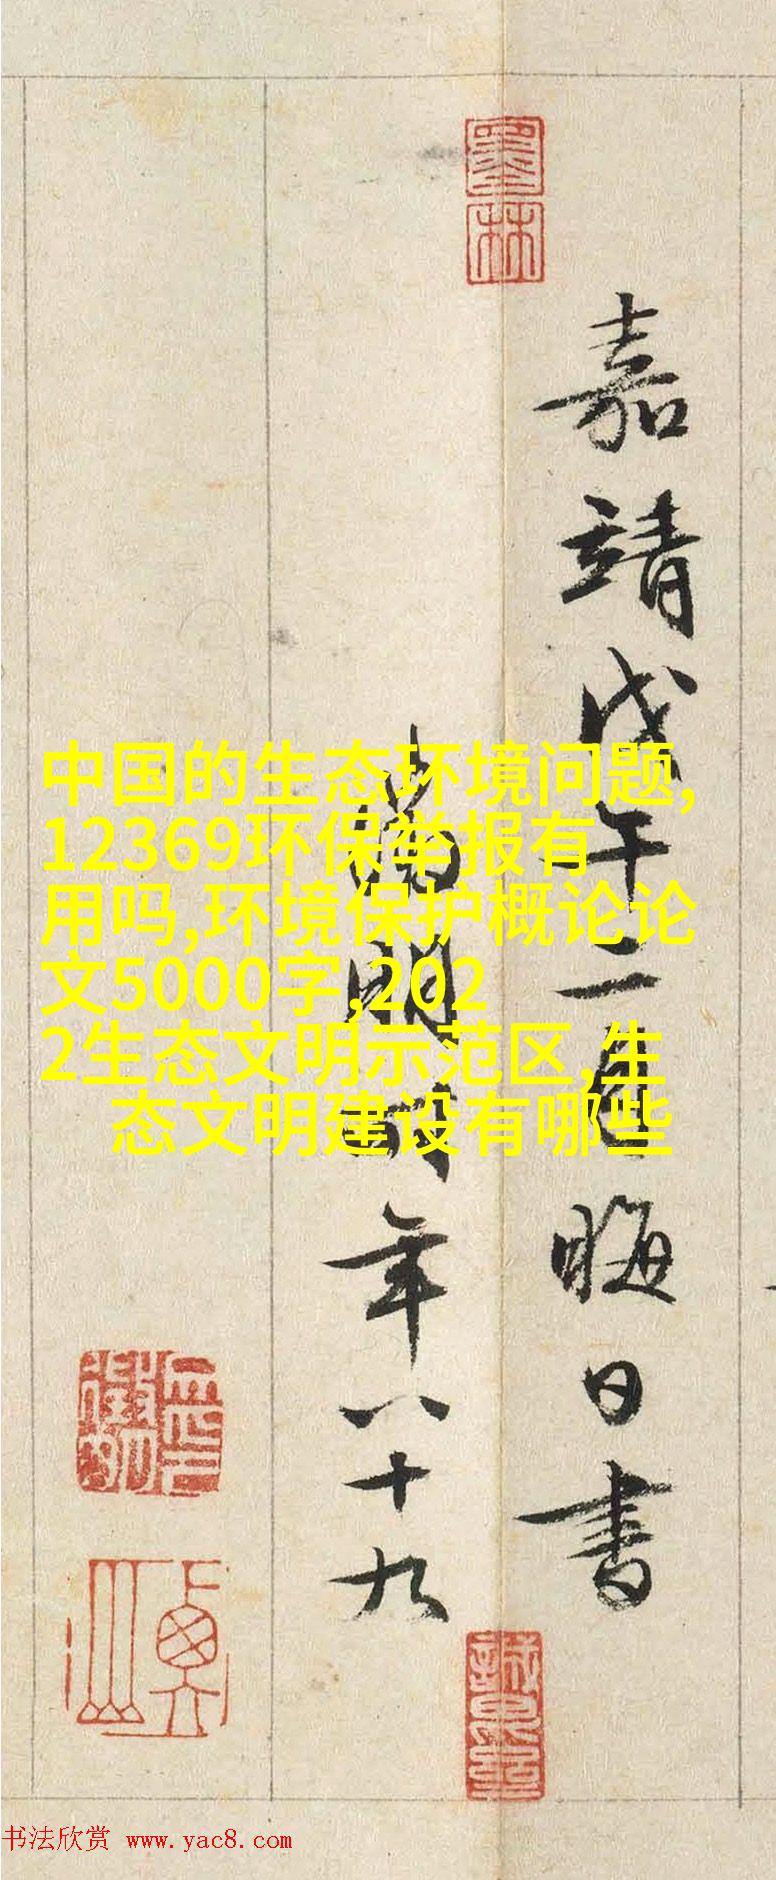 嘉靖戊午二月晦日書
徵明時年八十九
墨林
中国的生态环境问题,
12369环保举报有
用吗,环境保护概论论
文5000字,202
2生态文明示范区,生
态文明建设有哪些
书法欣赏 www.yac8.com